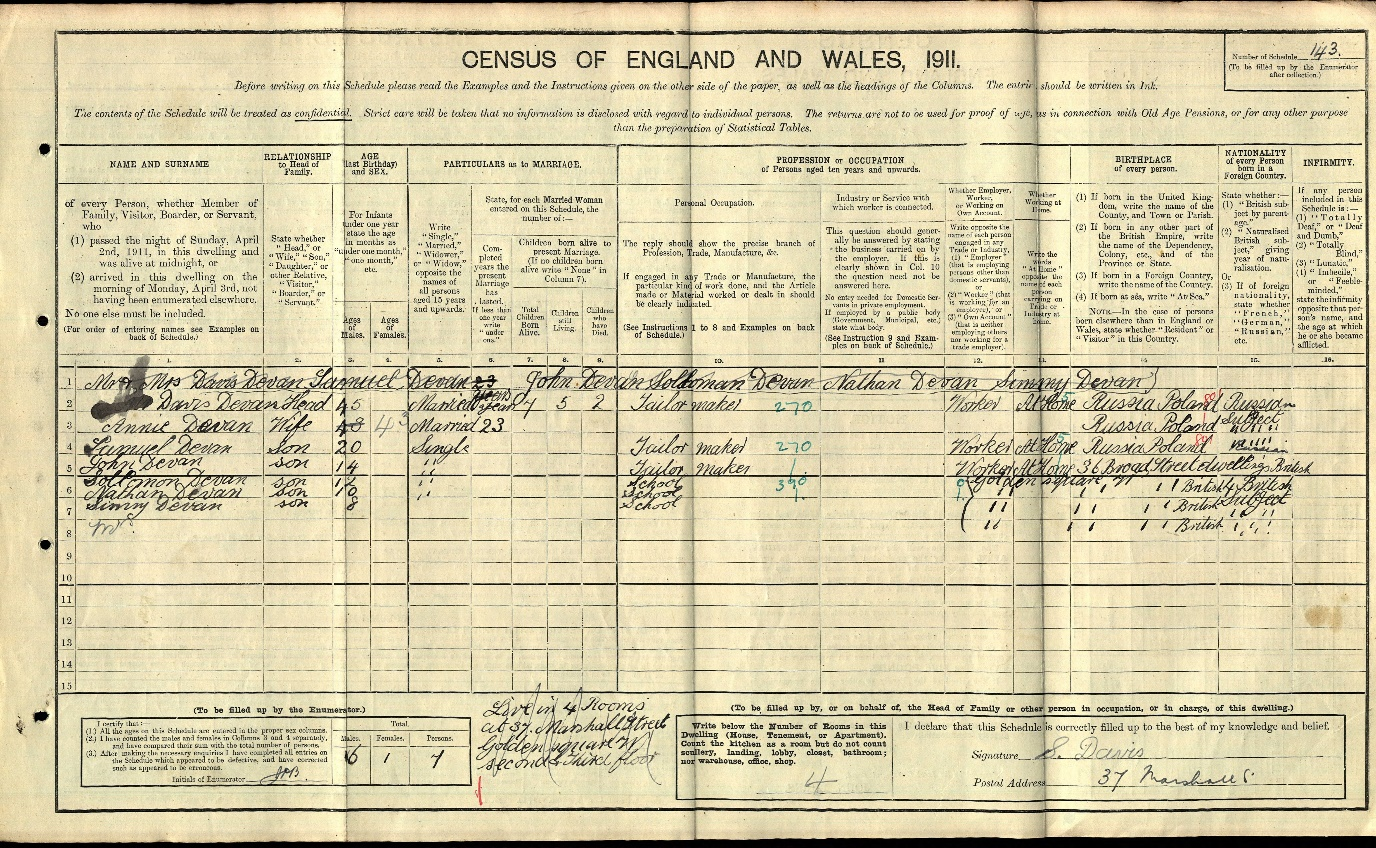 CENSUS OF ENGLAND AND WALES, 1911.
Number of Schedule 143.
(To be filled up by the Enumerator after collection.)
Before writing on this Schedule please read the Examples and the Instructions given on the other side of the paper, as well as the headings of the Columns. The entries should be written in Ink.
The contents of the Schedule will be treated as confidential. Strict care will be taken that no information is disclosed with regard to individual persons. The returns are not to be used for proof of age, as in connection with Old Age Pensions, or for any other purpose
than the preparation of Statistical Tables.
NAME AND SURNAME
of every Person, whether Member of
Family, Visitor, Boarder, or Servant,
who
(1) passed the night of Sunday, April
2nd, 1911, in this dwelling and
was alive at midnight, or
(2) arrived in this dwelling on the
morning of Monday, April 3rd, not
having been enumerated elsewhere.
No one else must be included.
(For order of entering names see Examples on
back of Schedule.)
RELATIONSHIP
to Head of
Family.
State whether
"Head," or
"Wife," "Son,"
"Daughter," or
other Relative,
"Visitor,"
"Boarder," or
"Servant."
AGE
(last Birthday)
and SEX.
For Infants
under one year
state the age
in months as
"under one month,"
"one month,"
etc.
Ages of Males.
Ages of Females.
PARTICULARS as to MARRIAGE.
Write
"Single,"
"Married,"
"Widower,"
or "Widow,"
opposite the
names of
all persons
aged 15 years
and upwards.
State, for each Married Woman
entered on this Schedule, the
number of:—
Completed years the present Marriage has lasted. If less than one year write "under one."
Children born alive to
present Marriage.
(If no children born
alive write "None" in
Column 7).
Total Children Born Alive.
Children still Living.
Children who have Died.
PROFESSION or OCCUPATION
of Persons aged ten years and upwards.
Personal Occupation.
The reply should show the precise branch of
Profession, Trade, Manufacture, &c.
If engaged in any Trade or Manufacture, the
particular kind of work done, and the Article
made or Material worked or dealt in should
be clearly indicated.
(See Instructions 1 to 8 and Examples on back
of Schedule.)
Industry or Service with
which worker is connected.
This question should generally
be answered by stating
the business carried on by
the employer. If this is
clearly shown in Col. 10
the question need not be
answered here.
No entry needed for Domestic Servants
in private employment.
If employed by a public body
(Government, Municipal, etc.)
state what body.
(See Instruction 9 and Examples
on back of Schedule.)
Whether Employer, Worker, or Working on Own Account.
Write opposite the name of each person engaged in any Trade or Industry,
(1) "Employer" (that is employing persons other than domestic servants), or
(2) "Worker" (that is working for an employer), or
(3) "Own Account" (that is neither employing others nor working for a trade employer).
Whether Working at Home.
Write the words "At Home" opposite the name of each person carrying on Trade or Industry at home.
BIRTHPLACE
of every person.
(1) If born in the United Kingdom,
write the name of the
County, and Town or Parish.
(2) If born in any other part of
the British Empire, write
the name of the Dependency,
Colony, etc., and of the
Province or State.
(3) If born in a Foreign Country,
write the name of the Country.
(4) If born at sea, write "At Sea."
NOTE.—In the case of persons
born elsewhere than in England or
Wales, state whether "Resident" or
"Visitor" in this Country.
NATIONALITY
of every Person
born in a
Foreign Country.
State whether:—
(1) "British subject
by parentage,"
(2) "Naturalised
British subject,"
giving
year of naturalisation.
Or
(3) If of foreign
nationality,
state whether
"French,"
"German,"
"Russian,"
etc.
INFIRMITY.
If any person
included in this
Schedule is:—
(1) "Totally
Deaf," or "Deaf
and Dumb,"
(2) "Totally
Blind,"
(3) "Lunatic,"
(4) "Imbecile,"
or "Feeble-minded,"
state the infirmity
opposite that person's
name, and
the age at which
he or she became
afflicted.
1. 2. 3. 4. 5. 6. 7. 8. 9. 10. 11. 12. 13. 14. 15. 16.
1 Mr Mrs Davis Devan Samuel Devan 23 John Devan Solloman Devan Nathan Devan Simmy Devan)
2 Davis Devan Head 45 Married years 7 5 2 Tailor maker 270 Worker At Home Russia Poland Russian
3 Annie Devan Wife 43 43 Married 23 Russia Poland Subject
4 Samuel Devan son 20 Single Tailor maker 270 Worker At Home Russia Poland
5 John Devan son 14 " Tailor maker Worker At Home 36 Broad Street dwellings British
6 Solloman Devan son 12 " School 390 Golden square W British
Nathan Devan son 10 " School " " " British Subject
7 Simmy Devan son 8 School " " " British " "
8
9
10
11
12
13
14
15
(To be filled up by the Enumerator.)
I certify that:—
(1.) All the ages on this Schedule are entered in the proper sex columns.
(2.) I have counted the males and females in Columns 3 and 4 separately,
and have compared their sum with the total number of persons.
(3.) After making the necessary enquiries I have completed all entries on
the Schedule which appeared to be defective, and have corrected
such as appeared to be erroneous.
Initials of Enumerator
Total.
Males. Females. Persons.
6 1 7
Live in 4 Rooms
at 37. Marshall Street
Golden square W
second & Third floor
(To be filled up by, or on behalf of, the Head of Family or other person in occupation, or in charge, of this dwelling.)
Write below the Number of Rooms in this
Dwelling (House, Tenement, or Apartment).
Count the kitchen as a room but do not count
scullery, landing, lobby, closet, bathroom;
nor warehouse, office, shop.
4
I declare that this Schedule is correctly filled up to the best of my knowledge and belief.
Signature S. Davis
Postal Address 37 Marshall S.